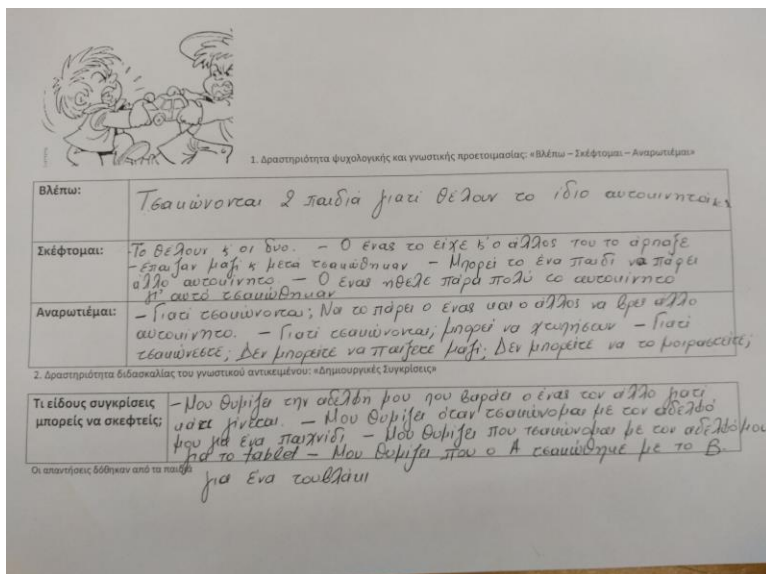 1. Δραστηριότητα ψυχολογικής και γνωστικής προετοιμασίας: «Βλέπω – Σκέφτομαι – Αναρωτιέμαι»
Βλέπω:
Τσακώνονται 2 παιδιά γιατί θέλουν το ίδιο αυτοκινητάκι
Σκέφτομαι:
-Το θέλουν κ' οι δυο. – Ο ένας το είχε κ' ο άλλος του το άρπαξε
-έπαιζαν μαζί κ μετά τσακώθηκαν – Μπορεί το ένα παιδί να πάρει
άλλο αυτοκίνητο – Ο ένας ήθελε πάρα πολύ το αυτοκίνητο
γι' αυτό τσακώθηκαν
Αναρωτιέμαι:
– Γιατί τσακώνονται; Να το πάρει ο ένας και ο άλλος να βρει άλλο
αυτοκίνητο. – Γιατί τσακώνονται; μπορεί να χτυπήσουν – Γιατί
τσακώνεστε; Δεν μπορείτε να παίξετε μαζί; Δεν μπορείτε να το μοιραστείτε;
2. Δραστηριότητα διδασκαλίας του γνωστικού αντικειμένου: «Δημιουργικές Συγκρίσεις»
Τι είδους συγκρίσεις
μπορείς να σκεφτείς;
– Μου θυμίζει την αδελφή μου που βαράει ο ένας τον άλλο γιατί
κάτι γίνεται. – Μου θυμίζει όταν τσακώνομαι με τον αδελφό
μου για ένα παιχνίδι – Μου θυμίζει που τσακώνομαι με τον αδελφό μου
για το tablet – Μου θυμίζει που ο Α τσακώθηκε με το Β.
για ένα τουβλάκι
Οι απαντήσεις δόθηκαν από τα παιδιά